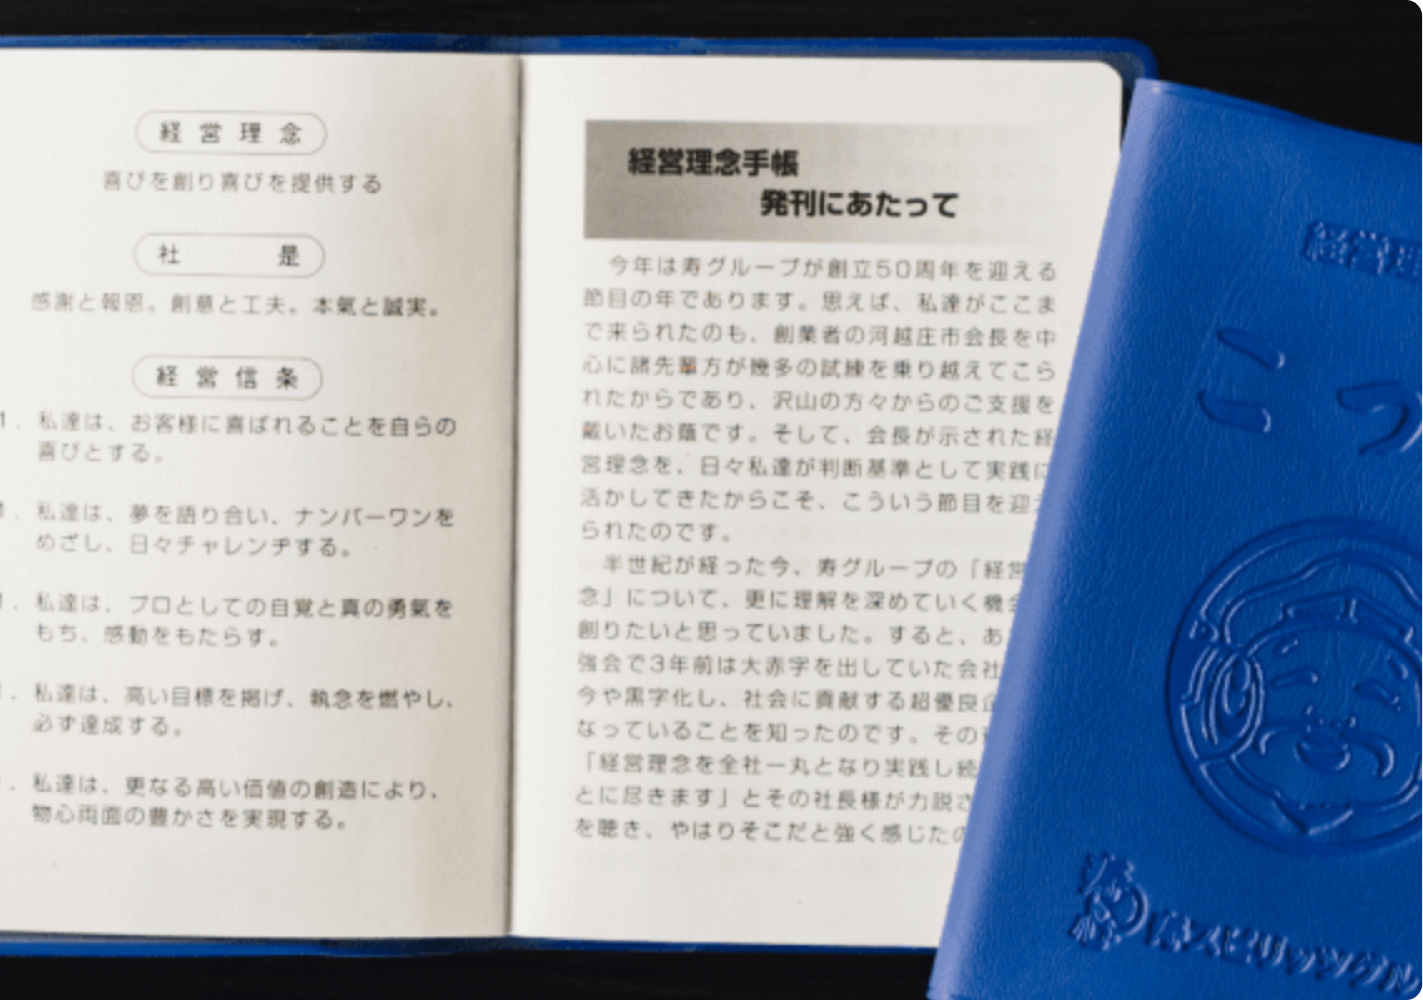 経営理念
喜びを創り喜びを提供する
社是
感謝と報恩。創意と工夫。本氣と誠実。
経営信条
1. 私達は、お客様に喜ばれることを自らの
喜びとする。
1. 私達は、夢を語り合い、ナンバーワンを
めざし、日々チャレンヂする。
1. 私達は、プロとしての自覚と真の勇氣を
もち、感動をもたらす。
1. 私達は、高い目標を掲げ、執念を燃やし、
必ず達成する。
1. 私達は、更なる高い価値の創造により、
物心両面の豊かさを実現する。
経営理念手帳
発刊にあたって
今年は寿グループが創立50周年を迎える
節目の年であります。思えば、私達がここま
で来られたのも、創業者の河越庄市会長を中
心に諸先輩方が幾多の試練を乗り越えてこら
れたからであり、沢山の方々からのご支援を
戴いたお蔭です。そして、会長が示された経
営理念を、日々私達が判断基準として実践に
活かしてきたからこそ、こういう節目を迎え
られたのです。
半世紀が経った今、寿グループの「経営
念」について、更に理解を深めていく機会
創りたいと思っていました。すると、あ
強会で3年前は大赤字を出していた会社
今や黒字化し、社会に貢献する超優良企
なっていることを知ったのです。その
「経営理念を全社一丸となり実践し続
とに尽きます」とその社長様が力説さ
を聴き、やはりそこだと強く感じたの
経営理
こつ
寿スピリッツグル